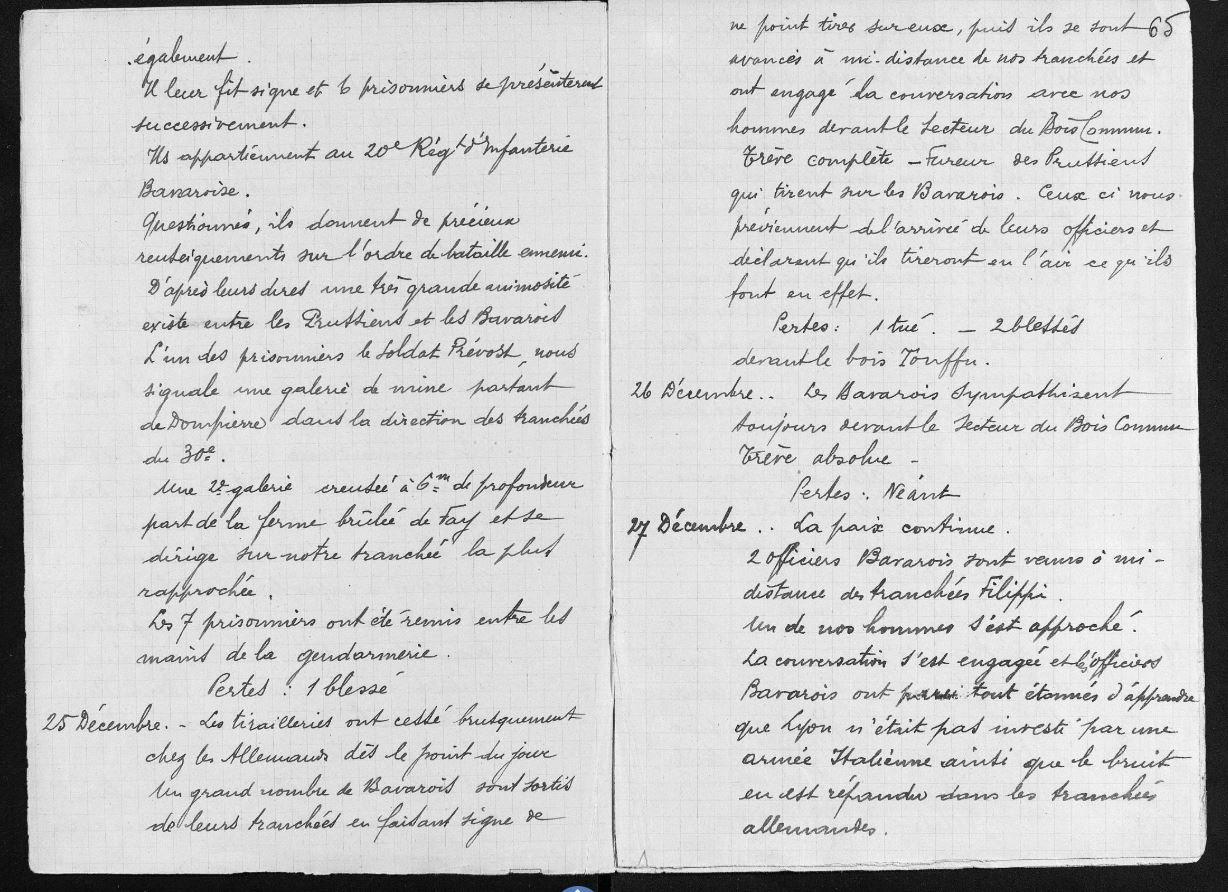 également.
Il leur fit signe et 6 prisonniers se présentèrent
successivement.
Ils appartiennent au 20e Régt d'Infanterie
Bavaroise.
Questionnés, ils donnent de précieux
renseignements sur l'ordre de bataille ennemi.
D'après leurs dires une très grande animosité
existe entre les Prussiens et les Bavarois
L'un des prisonniers le soldat Prévost, nous
signale une galerie de mine partant
de Dompierre dans la direction des tranchées
du 30e.
Une 2e galerie creusée à 6m de profondeur
part de la ferme brûlée de Fay et se
dirige sur notre tranchée la plus
rapprochée.
Les 7 prisonniers ont été remis entre les
mains de la gendarmerie.
Pertes : 1 blessé
25 Décembre. - Les tirailleries ont cessé brusquement
chez les Allemands dès le point du jour
Un grand nombre de Bavarois sont sortis
de leurs tranchées en faisant signe de
65
ne point tirer sur eux, puis ils se sont
avancés à mi-distance de nos tranchées et
ont engagé la conversation avec nos
hommes devant le secteur du Bois Commun.
Trêve complète - Fureur des Prussiens
qui tirent sur les Bavarois. Ceux ci nous
préviennent de l'arrivée de leurs officiers et
déclarant qu'ils tireront en l'air ce qu'ils
font en effet.
Pertes : 1 tué. - 2 blessés
devant le bois Touffu.
26 Décembre.. Les Bavarois sympathisent
toujours devant le secteur du Bois Commun
Trêve absolue -
Pertes : Néant
27 Décembre.. La paix continue.
2 officiers Bavarois sont venus à mi-
distance des tranchées Filippi.
Un de nos hommes s'est approché.
La conversation s'est engagée et les officiers
Bavarois ont tout étonnés d'apprendre
que Lyon n'était pas investi par une
armée Italienne ainsi que le bruit
en est répandu dans les tranchées
allemandes.